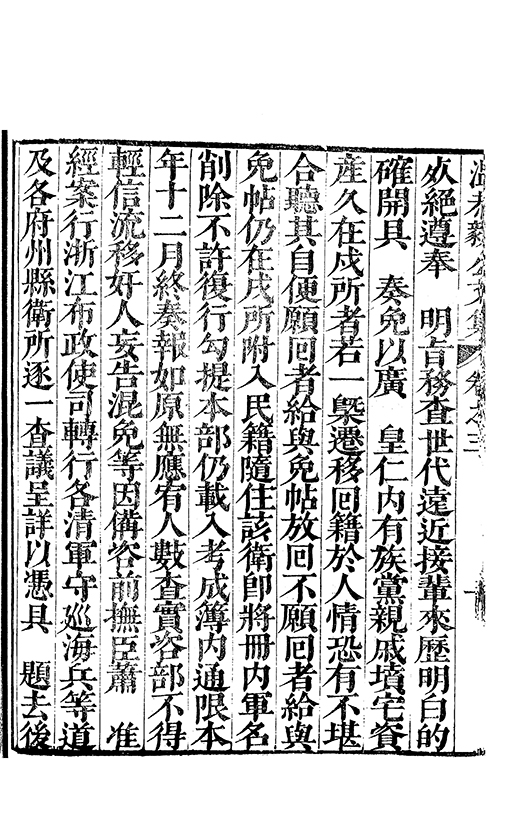 溫恭毅公文集 卷之三
決絕遵奉　明旨務查世代遠近接輩來歷明白的
確開具　奏免以廣　皇仁內有族黨親戚墳宅資
產久在戍所者若一槩遷移回籍於人情恐有不堪
合聽其自便願回者給與免帖放回不願回者給與
免帖仍在戍所附入民籍隨住該衛卽將冊內軍名
削除不許復行勾提本部仍載入考成簿內通限本
年十二月終奏報如原無應宥人數查實咨部不得
輕信流移奸人妄告混免等因備咨前撫臣蕭　准
經案行浙江布政使司轉行各清軍守巡海兵等道
及各府州縣衛所逐一查議呈詳以憑具　題去後